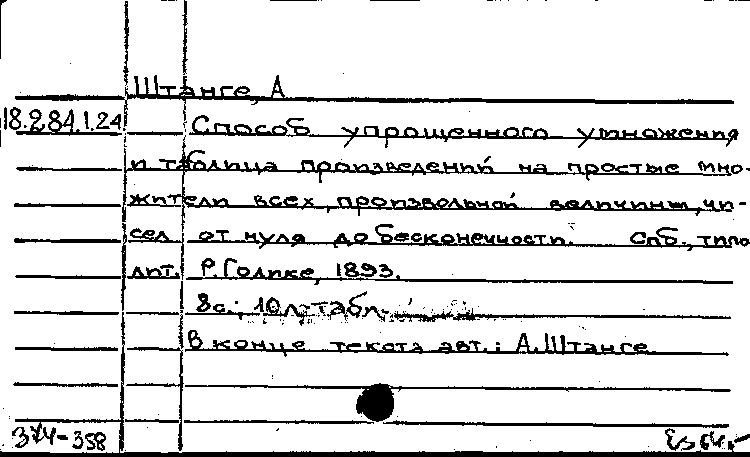 Штанге, А
18.284.1.24
Способ упрощенного умножения
и таблица произведений на простые мно-
жители всех, произвольной величины, чи-
сел от нуля до бесконечности. Спб., типо
лит. Р. Голике, 1893.
8с.; 10 л. табл.
В конце текста авт.: А. Штанге
374-358